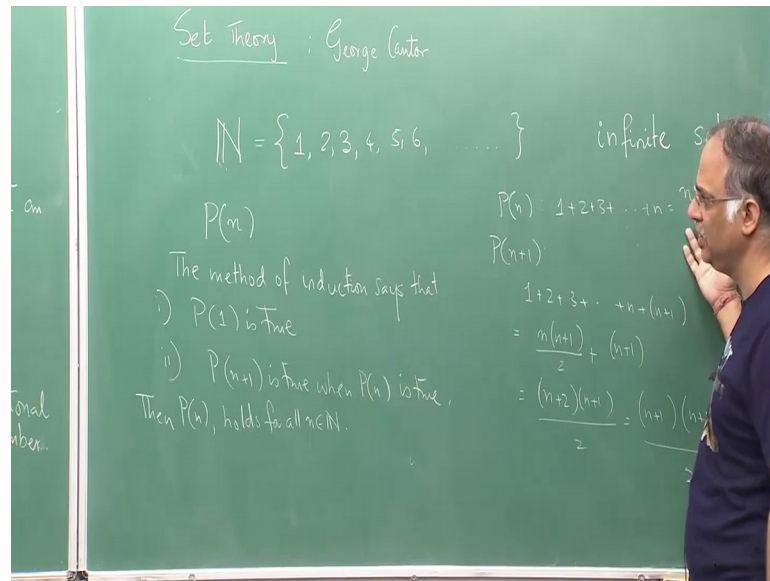 Set Theory : George Cantor
ℕ = { 1, 2, 3, 4, 5, 6, ..... } infinite
P(n)
The method of induction says that
i) P(1) is true
ii) P(n+1) is true when P(n) is true.
Then P(n), holds for all n∈ℕ.
P(n) 1+2+3+ ... +n =
P(n+1)
1+2+3+ .. +n+(n+1)
= n(n+1)/2 + (n+1)
= (n+2)(n+1)/2 = (n+1)(n+
an
onal
mber.